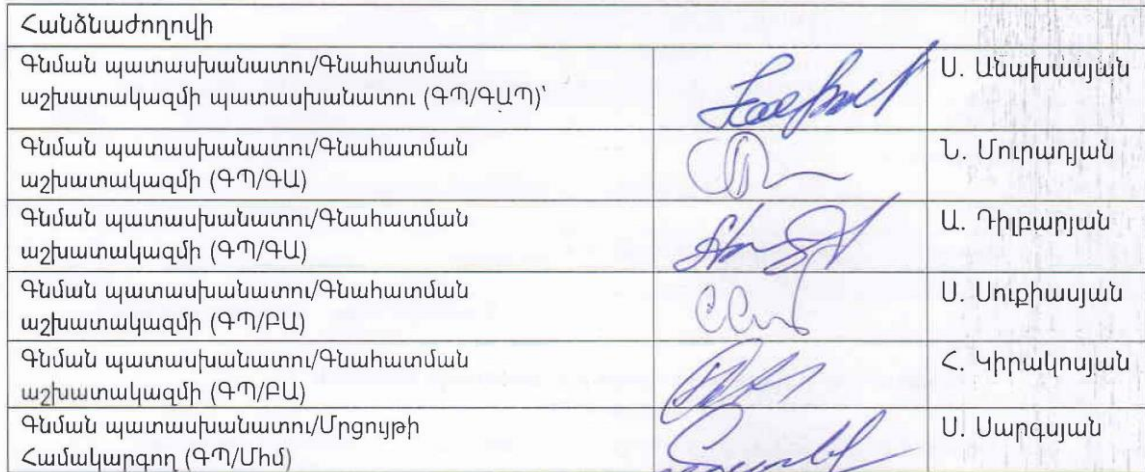 Հանձնաժողովի
Գնման պատասխանատու/Գնահատման
աշխատակազմի պատասխանատու (ԳՊ/ԳԱՊ)՝
Ս. Անախասյան
Գնման պատասխանատու/Գնահատման
աշխատակազմի (ԳՊ/ԳԱ)
Ն. Մուրադյան
Գնման պատասխանատու/Գնահատման
աշխատակազմի (ԳՊ/ԳԱ)
Ա. Դիլբարյան
Գնման պատասխանատու/Գնահատման
աշխատակազմի (ԳՊ/ԲԱ)
Ս. Սուքիասյան
Գնման պատասխանատու/Գնահատման
աշխատակազմի (ԳՊ/ԲԱ)
Հ. Կիրակոսյան
Գնման պատասխանատու/Մրցույթի
Համակարգող (ԳՊ/Մհմ)
Ս. Սարգսյան